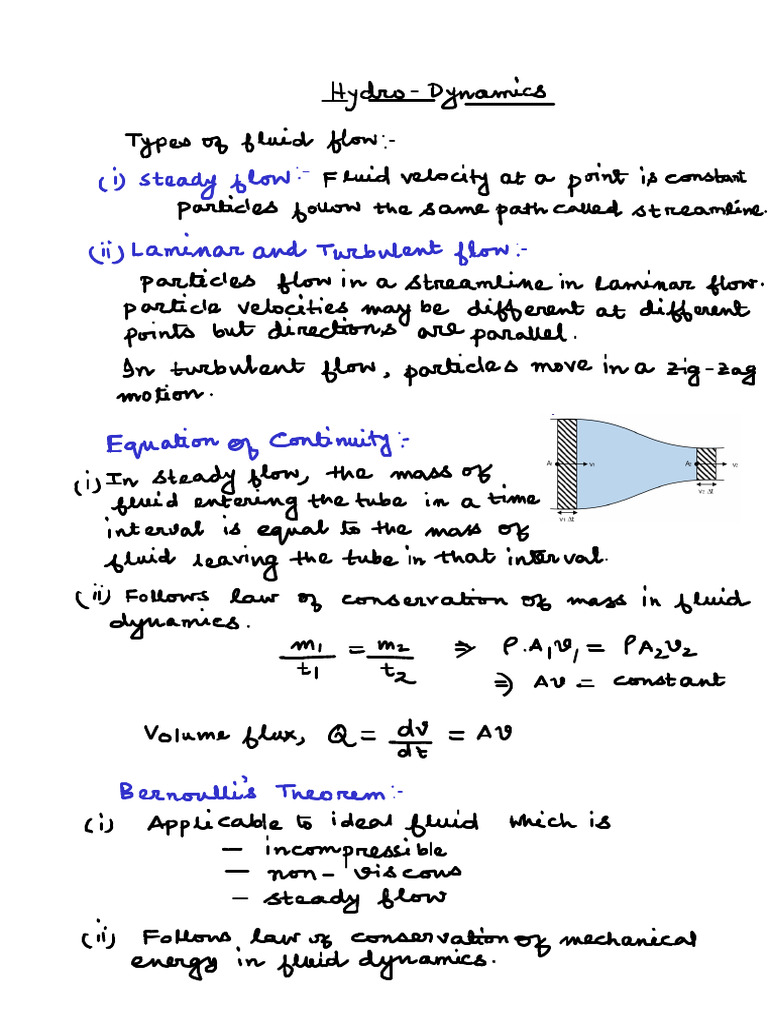 Hydro-Dynamics
Types of fluid flow:-
(i) Steady flow:- Fluid velocity at a point is constant
Particles follow the same path called streamline.
(ii) Laminar and Turbulent flow:-
Particles flow in a streamline in laminar flow.
Particle velocities may be different at different
points but directions are parallel.
In turbulent flow, particles move in a zig-zag
motion.
Equation of Continuity:-
(i) In steady flow, the mass of
fluid entering the tube in a time
interval is equal to the mass of
fluid leaving the tube in that interval.
A₁ v₁ A₂ v₂
v₁ Δt v₂ Δt
(ii) Follows law of conservation of mass in fluid
dynamics.
m₁/t₁ = m₂/t₂ ⇒ ρ.A₁v₁ = ρA₂v₂
⇒ Av = constant
Volume flux, Q = dv/dt = Av
Bernoulli's Theorem:-
(i) Applicable to ideal fluid which is
— incompressible
— non-viscous
— steady flow
(ii) Follows law of conservation of mechanical
energy in fluid dynamics.